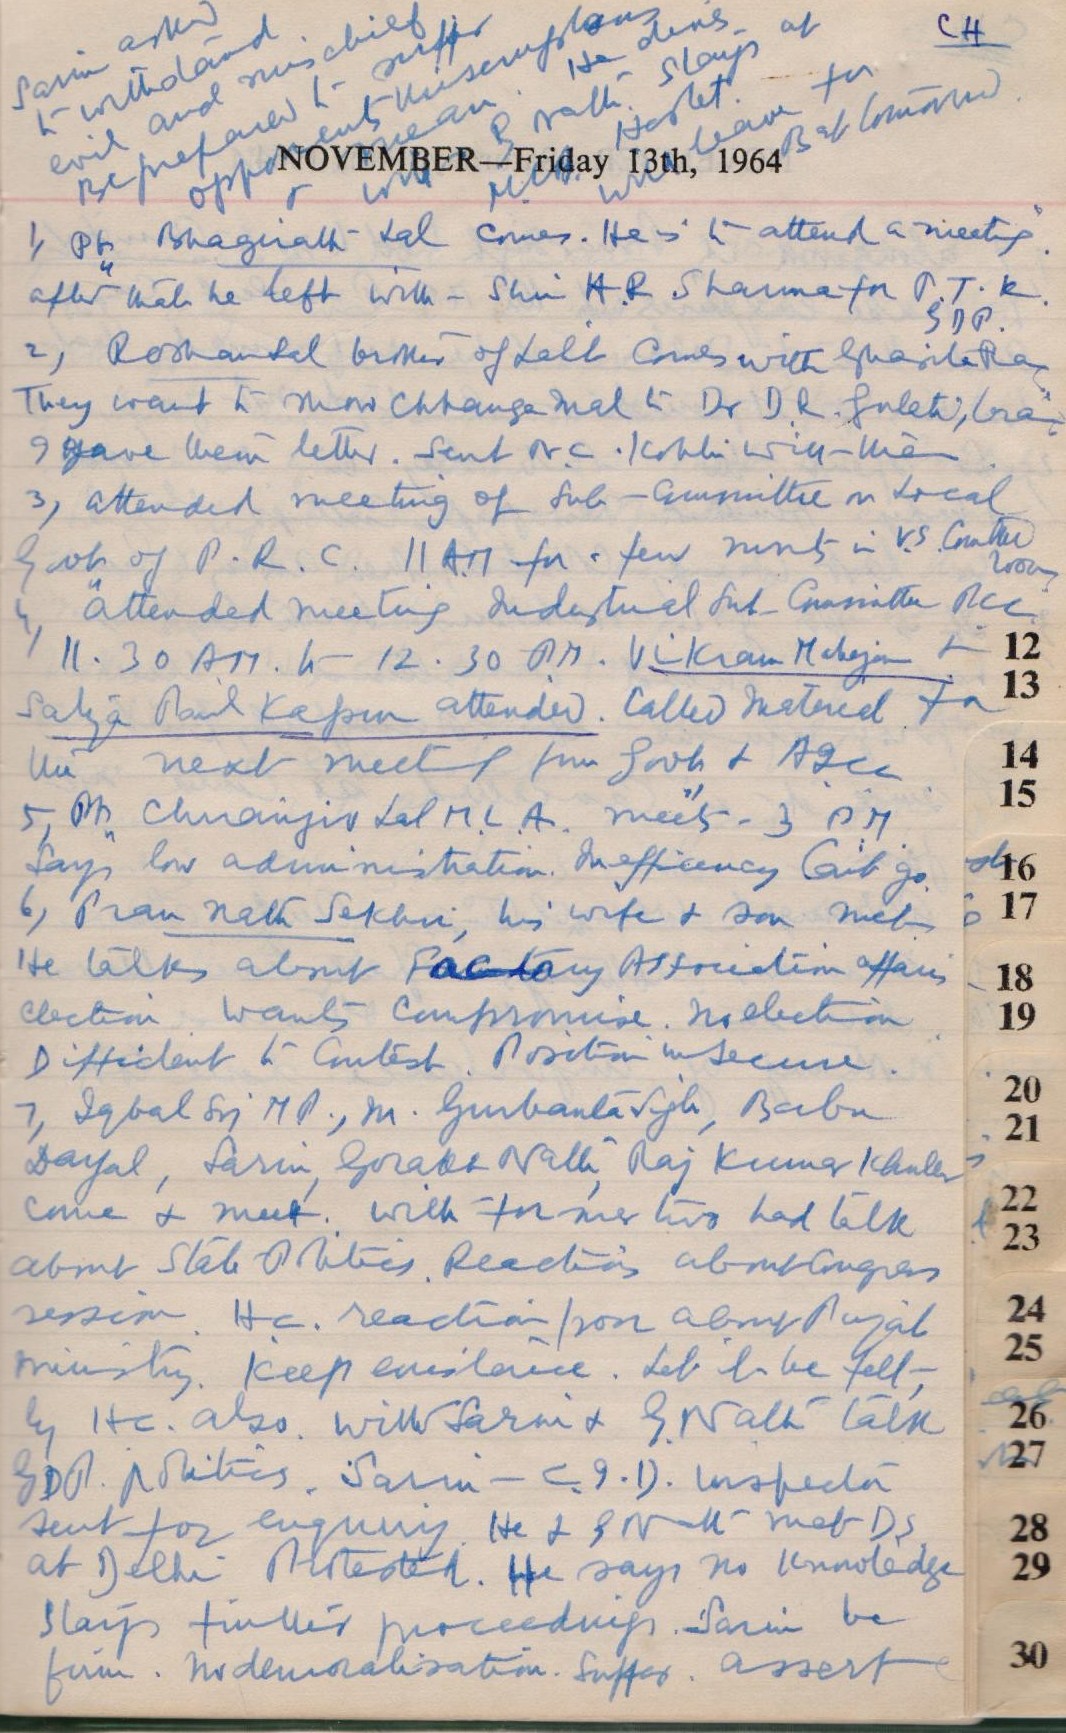 CH
Sarin asked
to withstand
evil and mischief
Be prepared to suffer
opponents
mean. He dines
& G Nath. Stays at
M.L.A. Hostel.
will leave for
NOVEMBER—Friday 13th, 1964
1, Pt. Bhagirath Lal comes. He is to attend a meeting.
after that he left with - Shri H.R. Sharma for P.T.K.
GDP.
2, Roshan Lal brother of Lalit comes with
They want to show Chhanga Mal to Dr D.R. Gulati,
I gave them letter. Sent N.C. Kohli with them
3, attended meeting of Sub-Committee on Local
Govt of P.R.C. 11 AM for a few minutes in V.S. Committee
room
4, attended meeting Industrial Sub-Committee
11.30 AM. to 12.30 PM. Vikram Mahajan &
Satya Paul Kapur attended. Called Material for
the next meeting from Govt &
5, Pt. Chiranjiv Lal M.L.A. meets - 3 PM
Says low administration. Inefficiency
6, Pran Nath Sekhri, his wife & son met
He talks about Factory Association affairs
election. Wants Compromise. No election
Diffident to Contest. Position insecure.
7, Iqbal Singh M.P., M. Gurbanta Singh, Babu
Dayal, Sarin, Gorakh Nath, Raj Kumar
come & meet. With former two had talk
about State Politics. Reactions about Congress
session. H.C. reaction poor about Punjab
ministry. Keep existence. Let it be felt
by H.C. also. With Sarin & G Nath talk
GDP. politics. Sarin - C.I.D. Inspector
sent for enquiry. He & G Nath met DS
at Delhi Protested. He says no knowledge
Stays further proceedings. Sarin be
firm. No demoralisation. Suffer. assert
12
13
14
15
16
17
18
19
20
21
22
23
24
25
26
27
28
29
30